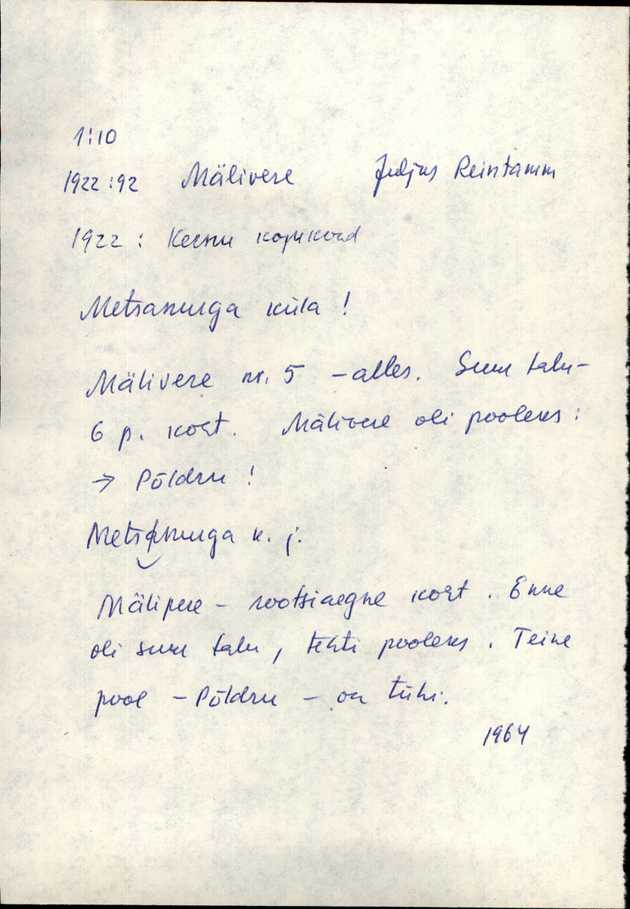 1:10
1922:92 Mälivere Juljus Reinstamm
1922: Keenu kopikord
Metsanurga küla!
Mälivere nr. 5 – alles. Suur talu –
6 p. koht. Mälivere oli pooleks:
→ Põldru!
Metsanurga k. j.
Mälipere – rootsiaegne koht. Enne
oli suur talu, tehti pooleks. Teine
pool – Põldru – on tühi.
1964